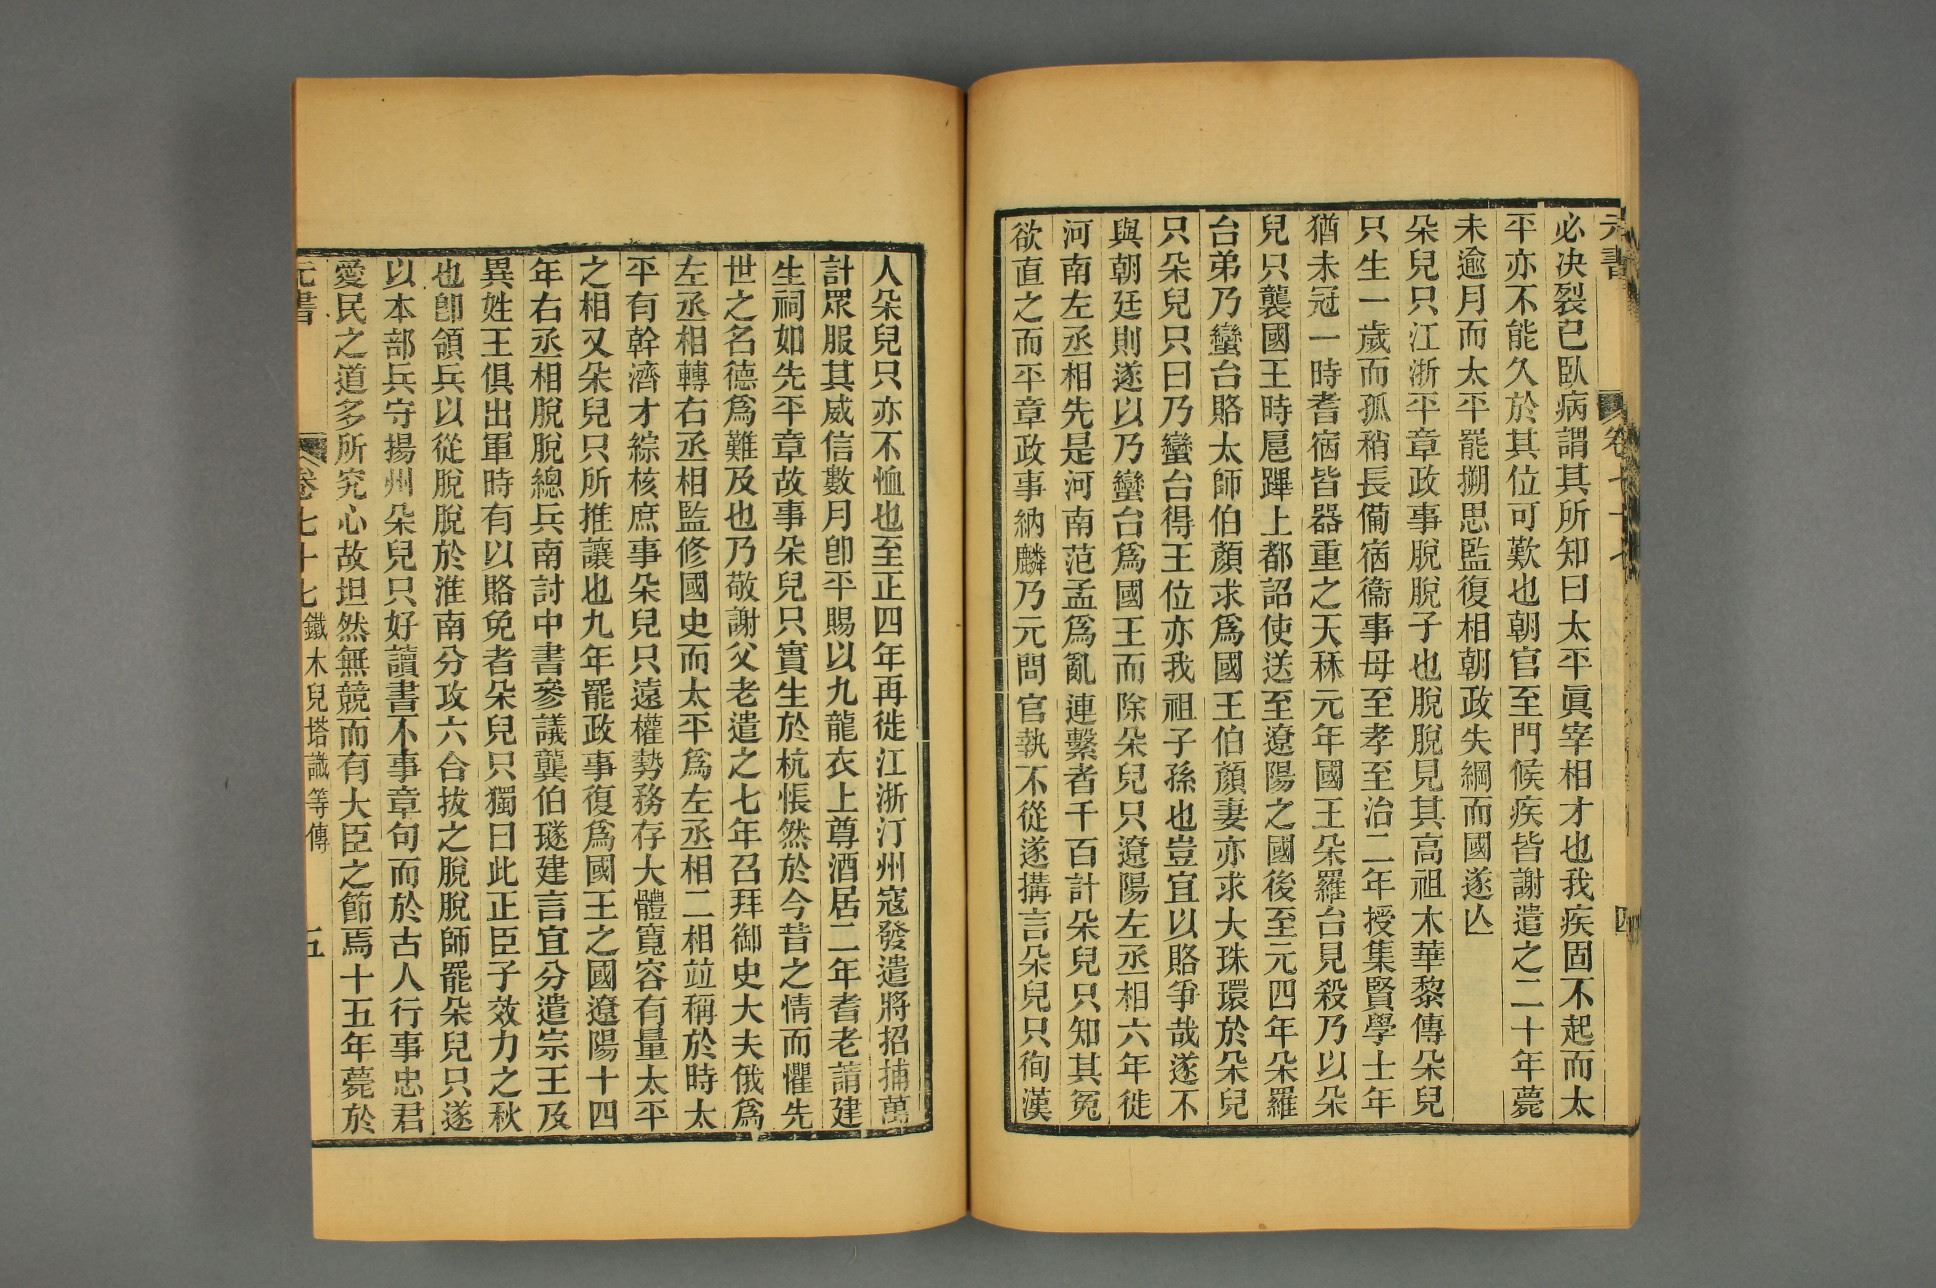 元書 卷七十七 四
必決裂已臥病謂其所知曰太平眞宰相才也我疾固不起而太
平亦不能久於其位可歎也朝官至門候疾皆謝遣之二十年薨
未逾月而太平罷搠思監復相朝政失綱而國遂亾
朵兒只江浙平章政事脫脫子也脫脫見其高祖木華黎傳朵兒
只生一歲而孤稍長備宿衞事母至孝至治二年授集賢學士年
猶未冠一時耆宿皆器重之天秝元年國王朵羅台見殺乃以朵
兒只襲國王時扈蹕上都詔使送至遼陽之國後至元四年朵羅
台弟乃蠻台賂太師伯顏求爲國王伯顏妻亦求大珠環於朵兒
只朵兒只曰乃蠻台得王位亦我祖子孫也豈宜以賂爭哉遂不
與朝廷則遂以乃蠻台爲國王而除朵兒只遼陽左丞相六年徙
河南左丞相先是河南范孟爲亂連繫者千百計朵兒只知其冤
欲直之而平章政事納麟乃元問官執不從遂搆言朵兒只徇漢
人朵兒只亦不恤也至正四年再徙江浙汀州寇發遣將招捕萬
計眾服其威信數月卽平賜以九龍衣上尊酒居二年耆老請建
生祠如先平章故事朵兒只實生於杭悵然於今昔之情而懼先
世之名德爲難及也乃敬謝父老遣之七年召拜御史大夫俄爲
左丞相轉右丞相監修國史而太平爲左丞相二相竝稱於時太
平有幹濟才綜核庶事朵兒只遠權勢務存大體寬容有量太平
之相又朵兒只所推讓也九年罷政事復爲國王之國遼陽十四
年右丞相脫脫總兵南討中書參議龔伯璲建言宜分遣宗王及
異姓王俱出軍時有以賂免者朵兒只獨曰此正臣子效力之秋
也卽領兵以從脫脫於淮南分攻六合拔之脫脫師罷朵兒只遂
以本部兵守揚州朵兒只好讀書不事章句而於古人行事忠君
愛民之道多所究心故坦然無競而有大臣之節焉十五年薨於
元書 卷七十七 鐵木兒塔識等傳 五